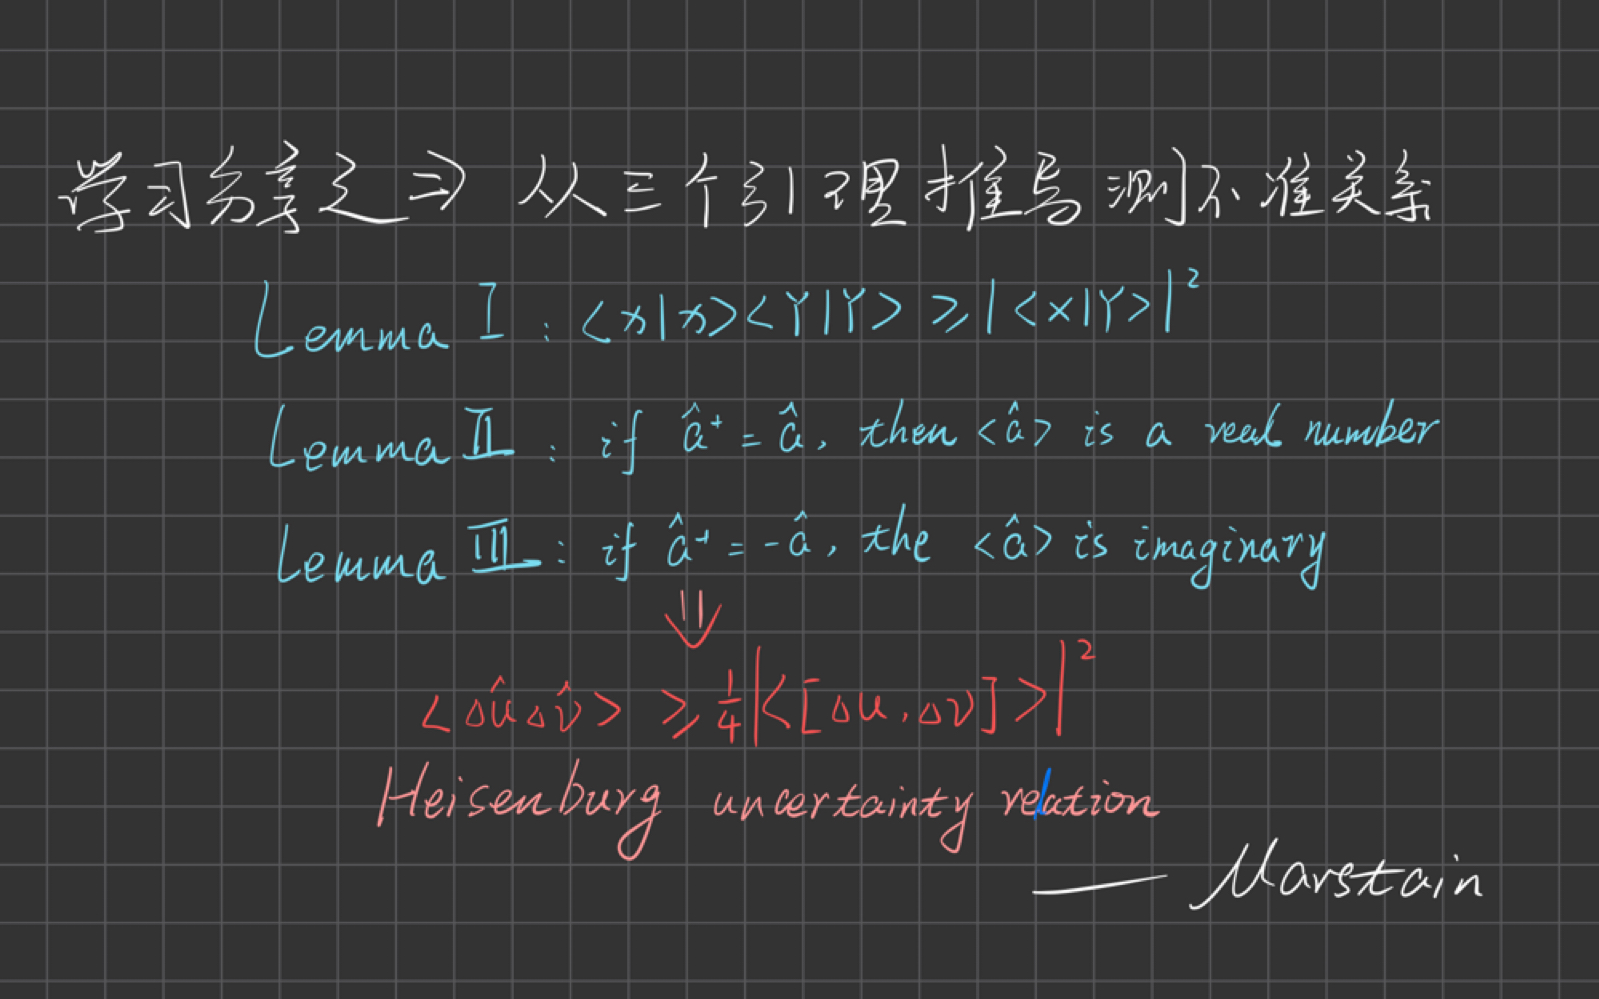 学习分享之⇒ 从三个引理推导测不准关系
Lemma I : <x|x><Y|Y> ≥ |<x|Y>|²
Lemma II : if â⁺ = â, then <â> is a real number
Lemma III : if â⁺ = -â, the <â> is imaginary
⇓
<Δû Δv̂> ≥ ¼|<[Δu, Δv]>|²
Heisenburg uncertainty relation
— Marstain